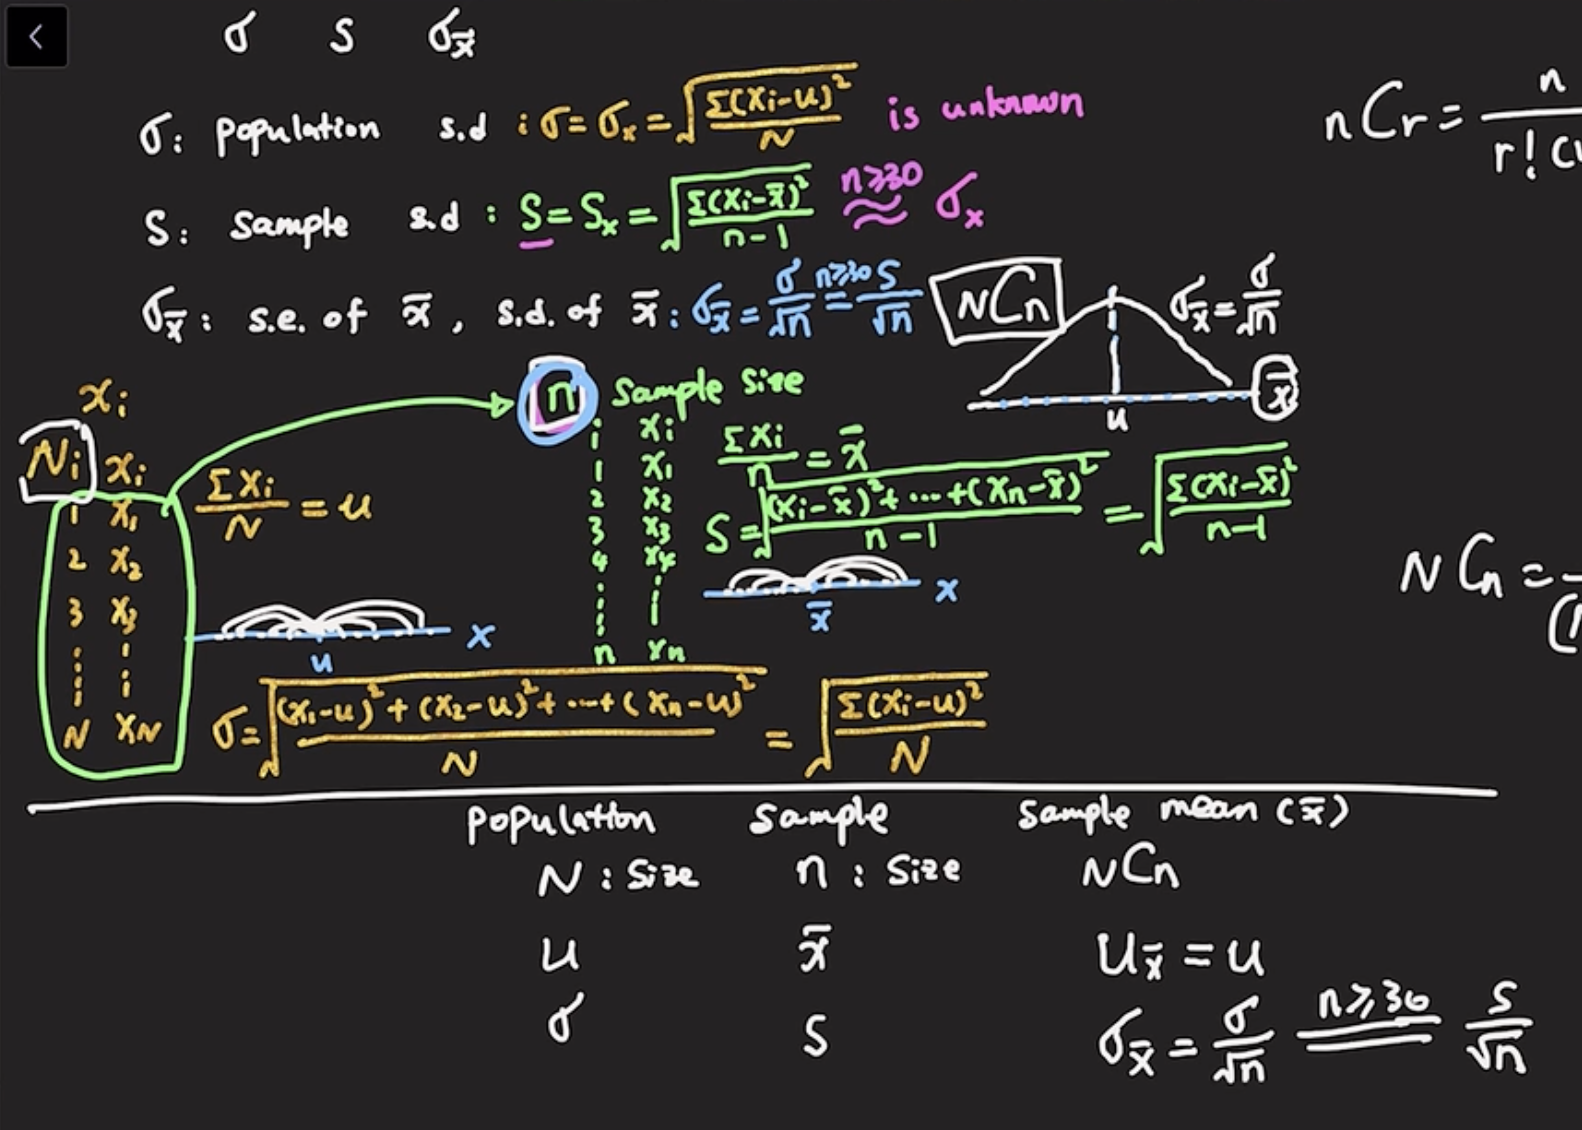 σ s σx̄
σ: population s.d : σ = σx = √(Σ(xi-u)²/N) is unknown
s: sample s.d : s = sx = √(Σ(xi-x̄)²/n-1) n≥30 ≈ σx
σx̄: s.e. of x̄, s.d. of x̄: σx̄ = σ/√n n≥30 = s/√n
NCn
σx̄ = σ/√n
u
x̄
nCr = n
r!
xi
Ni xi
1 x1
2 x2
3 x3
N xN
Σxi/N = u
u x
n sample size
i xi
1 x1
2 x2
3 x3
4 x4
n xn
Σxi/n = x̄
s = √((xi-x̄)²+⋯+(xn-x̄)²/n-1) = √(Σ(xi-x̄)²/n-1)
x̄ x
NCn =
σ = √((x1-u)²+(x2-u)²+⋯+(xn-u)²/N) = √(Σ(xi-u)²/N)
population sample sample mean (x̄)
N : size n : size NCn
u x̄ ux̄ = u
σ s σx̄ = σ/√n n≥30 = s/√n